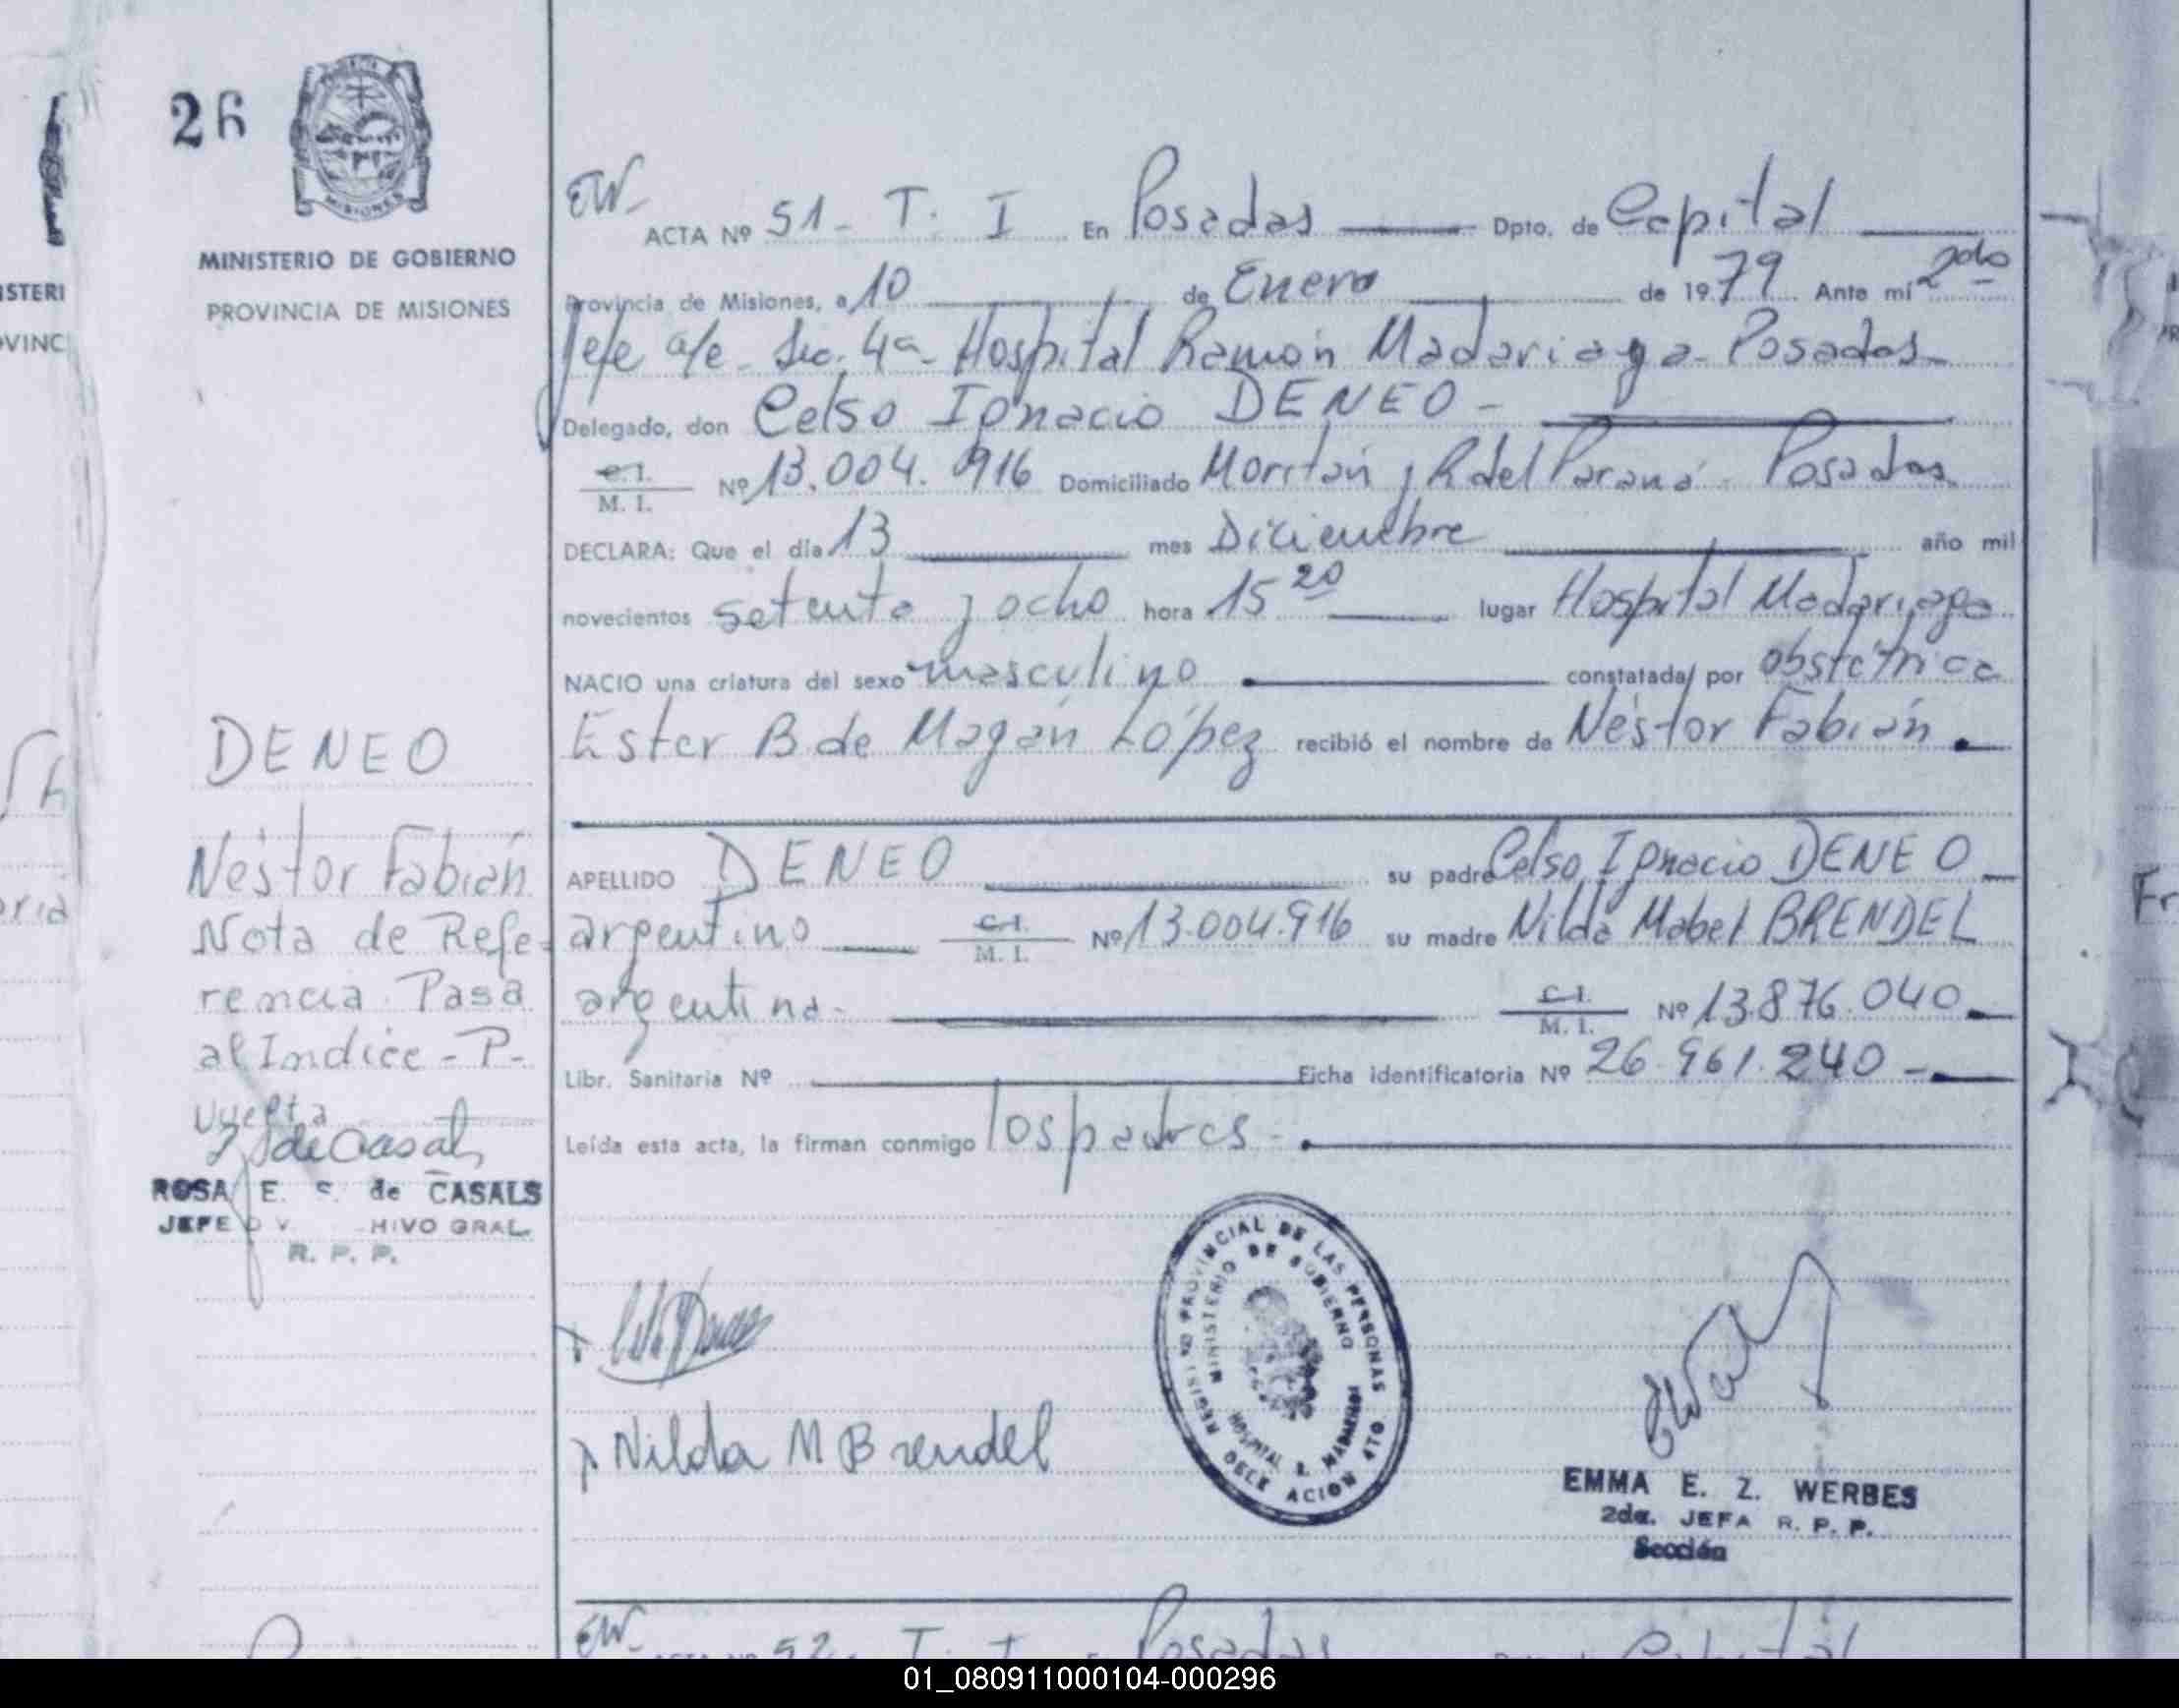 26
MISIONES
MINISTERIO DE GOBIERNO
PROVINCIA DE MISIONES
DENEO
Néstor Fabián
Nota de Refe-
rencia Pasa
al Indice - P-
vuelta
de Casals
ROSA E. S. de CASALS
JEFE D V HIVO GRAL.
R. P. P.
EW-
ACTA Nº 51- T. I En Posadas Dpto. de Capital
Provincia de Misiones, a 10 de Enero de 1979 Ante mí 2do
Jefe a/c - Sec. 4a- Hospital Ramón Madariaga - Posados
Delegado, don Celso Ignacio DENEO -
C.I. M. I. Nº 13.004.916 Domiciliado y R del Paraná - Posadas
DECLARA: Que el día 13 mes Diciembre año mil
novecientos setenta y ocho hora 15 20 lugar Hospital Madariaga
NACIO una criatura del sexo masculino constatada/ por obstétrica
Ester B de Magán López recibió el nombre de Néstor Fabián
APELLIDO DENEO su padre Celso Ignacio DENEO
argentino C.I. M. I. Nº 13.004.916 su madre Nilda Mabel BRENDEL
argentina- C.I. M. I. Nº 13.876.040
Libr. Sanitaria Nº Ficha identificatoria Nº 26.961.240 -
Leída esta acta, la firman conmigo los padres -
REGISTRO PROVINCIAL DE LAS PERSONAS
MINISTERIO DE GOBIERNO
HOSPITAL R. MADARIAGA
Nilda M Brendel
EMMA E. Z. WERBES
2da. JEFA R. P. P.
Sección
EW-
ACTA Nº 52. T. I Posadas Capital
ISTERI
OVINC
01_080911000104-000296